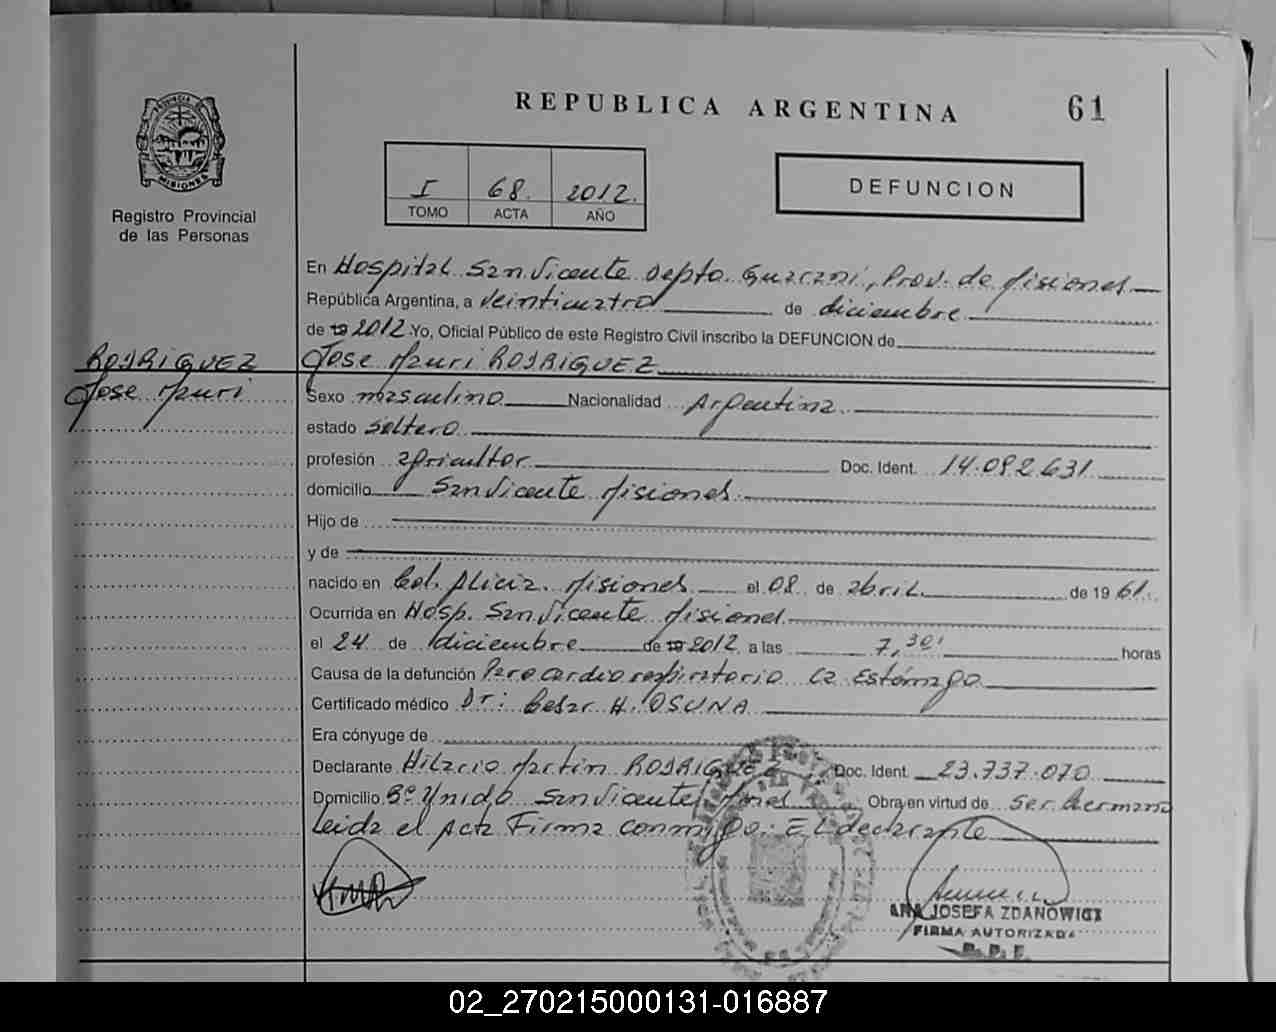 REPUBLICA ARGENTINA
61
PROVINCIA DE
MISIONES
Registro Provincial
de las Personas
I 68. 2012.
TOMO ACTA AÑO
DEFUNCION
En Hospital San Vicente Depto. Guarani, Prov. de Misiones
República Argentina, a veinticuatro de diciembre
de 19 2012 Yo, Oficial Público de este Registro Civil inscribo la DEFUNCION de
RODRIGUEZ
Jose Mauri
Jose Mauri RODRIGUEZ
Sexo masculino Nacionalidad Argentina
estado soltero
profesión agricultor Doc. Ident. 14.092.631
domicilio San Vicente Misiones
Hijo de
y de
nacido en Col. Alicia Misiones el 08 de abril de 19 61
Ocurrida en Hosp. San Vicente Misiones
el 24 de diciembre de 19 2012 a las 7,30' horas
Causa de la defunción Paro cardio respiratorio ca Estómago
Certificado médico Dr: Cesar H. OSUNA
Era cónyuge de
Declarante Hilario Martin RODRIGUEZ Doc. Ident. 23.737.070
Domicilio Bº Unido San Vicente Mnes Obra en virtud de ser hermano
leida el Acta Firma conmigo. El declarante
ANA JOSEFA ZDANOWICZ
FIRMA AUTORIZADA
R. P. P.
02_270215000131-016887